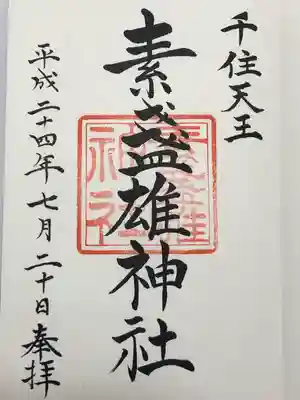 千住天王
素盞雄神社
平成二十四年七月二十日奉拝